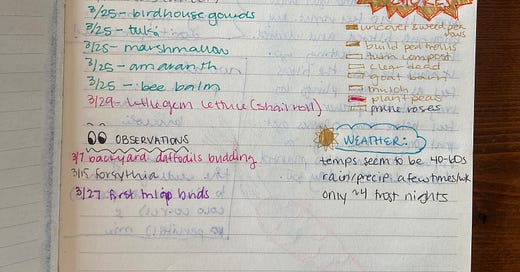 3/25 - birdhouse gourds
3/25 - tulsi
3/25 - marshmallow
3/25 - amaranth
3/25 - bee balm
3/29 - little gem lettuce (snail roll)
OBSERVATIONS
3/7 backyard daffodils budding
3/15 forsythia
3/27 first tulip buds
CHORES
uncover
build pea trellis
turn compost
clear bed
goat barn
mulch
plant peas
prune roses
WEATHER:
temps seem to be 40-60s
rain/precip a few times/wk
only ~4 frost nights